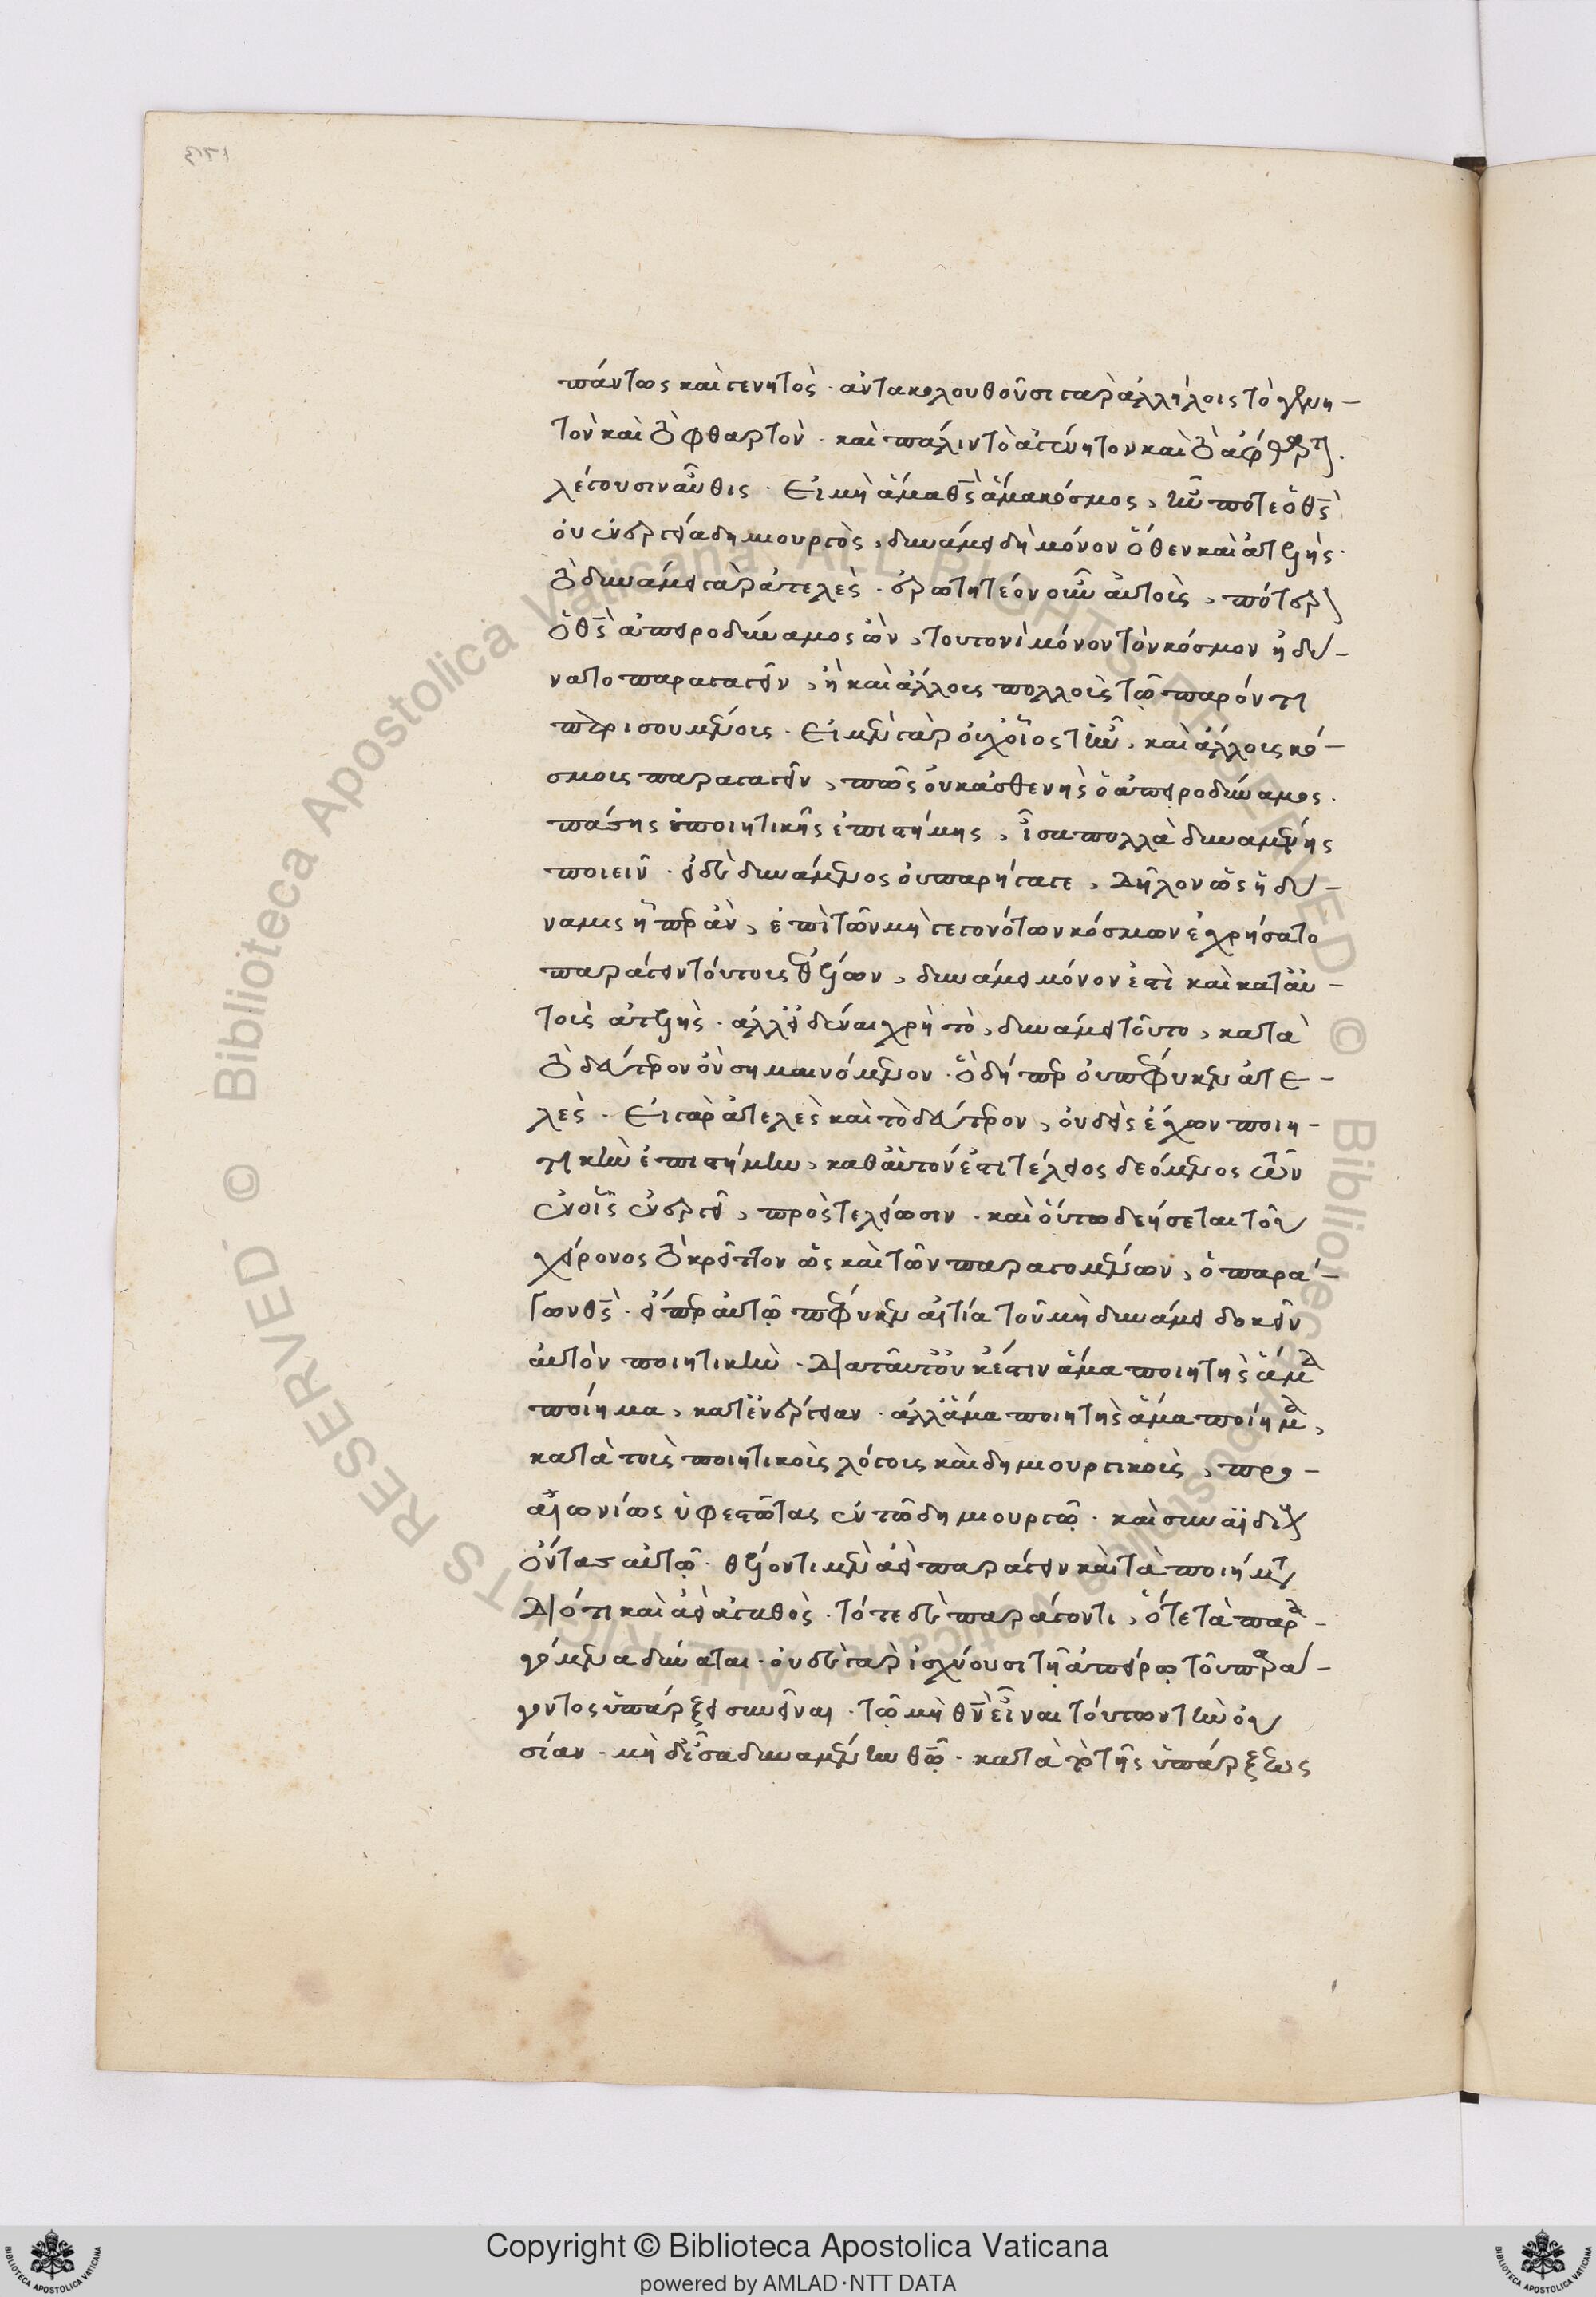 πάντως καὶ γενητὸς· ἀντακολουθοῦσι γὰρ ἀλλήλοις τὸ γενη-
τὸν καὶ τὸ φθαρτὸν· καὶ πάλιν τὸ ἀγένητον καὶ τὸ ἄφθαρτον.
λέγουσιν αὖθις· Εἰ μὴ ἅμα θς ἅμα κόσμος, ἦν ποτε ὁ θς
οὐκ ἐνεργείᾳ δημιουργὸς, δυνάμει δὴ μόνον ὅθεν καὶ ἀτελὴς·
τὸ δυνάμει γὰρ ἀτελὲς· ἐρωτητέον οὖν αὐτοὺς, πότερον
ὁ θς ἀπειροδύναμος ὢν, τουτονὶ μόνον τὸν κόσμον ἠδύ-
νατο παραγαγεῖν, ἢ καὶ ἄλλους πολλοὺς τῷ παρόντι
περισουμένους· Εἰ μὲν γὰρ οὐχ οἷός τ' ἦν, καὶ ἄλλους κό-
σμους παραγαγεῖν, πῶς οὐκ ἀσθενὴς ὁ ἀπειροδύναμος·
πάσης ποιητικῆς ἐπιστήμης, ἶσα πολλὰ δυναμένης
ποιεῖν· εἰ δὲ δυνάμενος οὐ παρήγαγε, Δῆλον ὡς ἡ δύ-
ναμις ἥπερ ἂν, ἐπὶ τῶν μὴ γεγονότων κόσμων ἐχρήσατο
παράγειν τούτους ἐθέλων, δυνάμει μόνον ἐστὶ καὶ κατ' αὐ-
τοὺς ἀτελὴς· ἀλλ' εἰδέναι χρὴ τὸ, δυνάμει τοῦτο, κατὰ
τὸ δεύτερον ὂν σημαινόμενον· ὃ δή περ οὐ πέφυκεν ἀτε-
λὲς· Εἰ γὰρ ἀτελὲς καὶ τὸ δεύτερον, οὐδεὶς ἔχων ποιη-
τικὴν ἐπιστήμην, καθ' αὑτόν ἐστι τέλειος δεόμενος ὧν
ἐν οἷς ἐνεργεῖ, πρὸς τελείωσιν· καὶ οὕτω δεήσεται τοῦ
χείρονος τὸ κρεῖττον ὡς καὶ τῶν παραγομένων, ὁ παρά-
γων θς· εἴπερ αὐτῷ πέφυκεν αἰτία τοῦ μὴ δυνάμει δοκεῖν
αὐτὸν ποιητικὴν· Διὰ ταῦτ' οὐκ ἔστιν ἅμα ποιητὴς ἅμα
ποίημα, κατ' ἐνέργειαν· ἀλλ' ἅμα ποιητὴς ἅμα ποίημα,
κατὰ τοὺς ποιητικοὺς λόγους καὶ δημιουργικοὺς, προ-
αιωνίως ὑφεστῶτας ἐν τῷ δημιουργῷ· καὶ συναϊδίους
ὄντας αὐτῷ· θέλοντι μὲν ἀεὶ παράγειν καὶ τὰ ποιήματα
Διότι καὶ ἀεὶ ἀγαθὸς· τότε δὲ παράγοντι, ὅτε τὰ παρα-
γόμενα δύναται· οὐδὲ γὰρ ἰσχύουσι τῇ ἀπείρῳ τοῦ παρά-
γοντος ὑπάρξει συνεῖναι· τῷ μὴ θν εἶναι τούτων τὴν οὐ-
σίαν· μὴ δ' ἰσαδυναμένην θῷ· κατὰ τὸ τῆς ὑπάρξεως